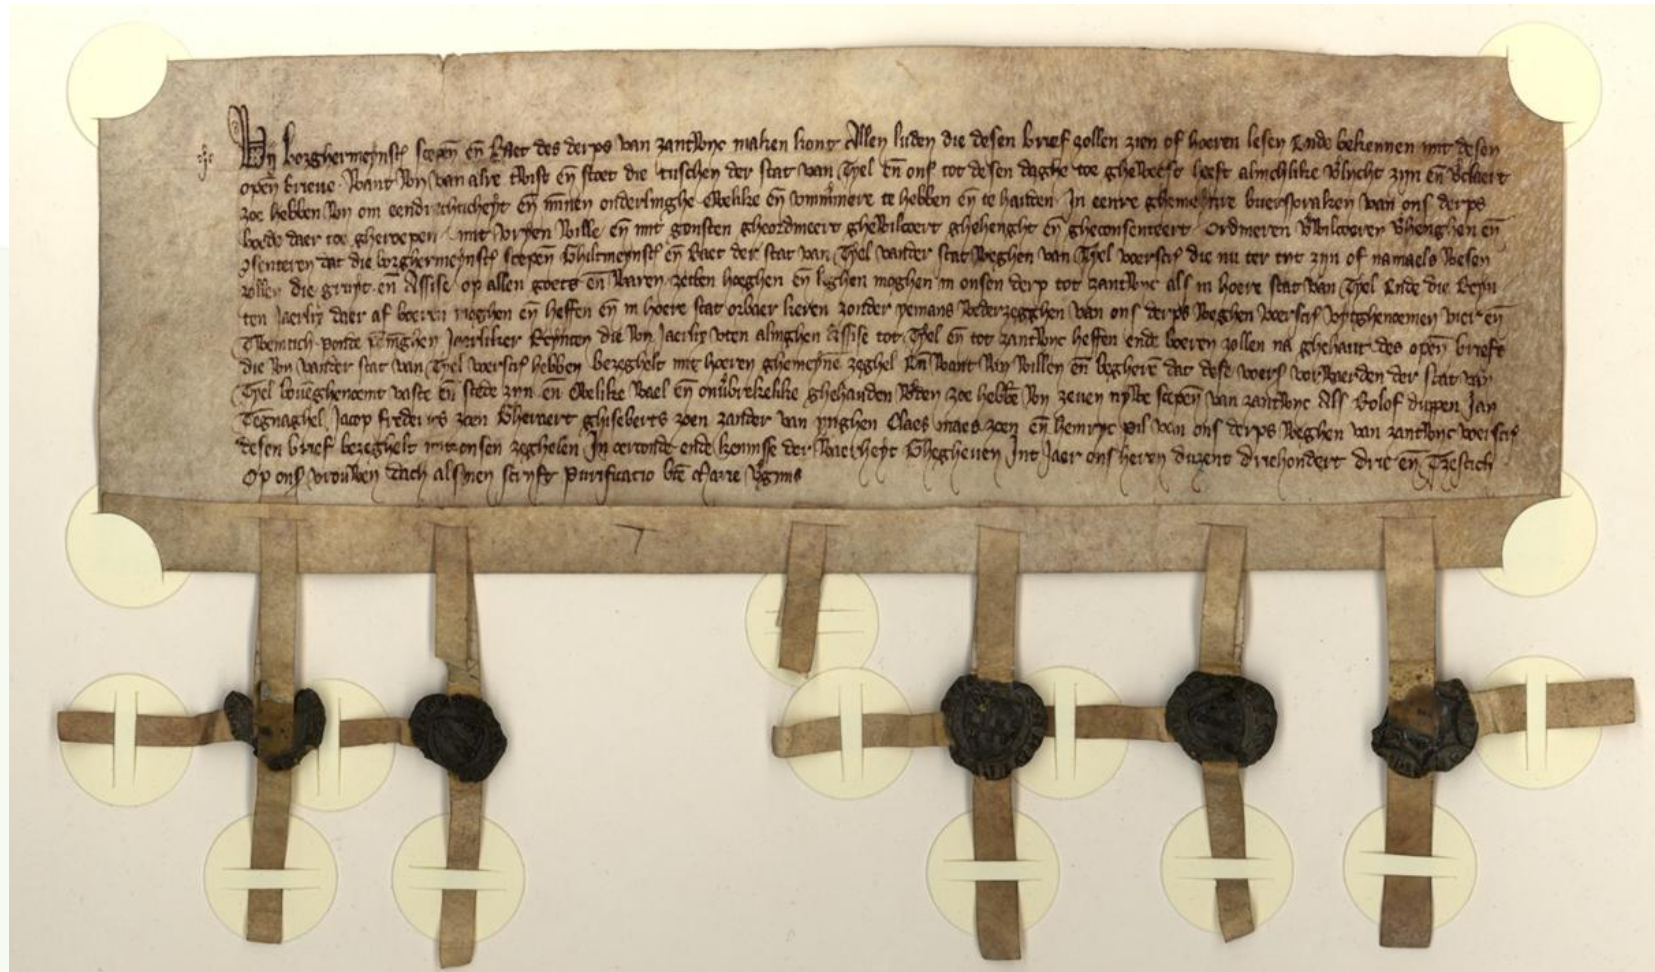 Wij borghermeynstr scepen en Raet des derps van zantwyc maken kont Allen luden die desen brief zollen zien of hoeren lesen Ende bekennen mit desen
open brieve Want wy van alre twist en stoet die tusschen der stat van Tyel en ons tot desen daghe toe gheweest heeft almechlike verlijcht zyn en verclaert
zoe hebben wy om eendrachticheyt en minnen onderlinghe Ewelike en ummermere te hebben en te halden In eenre ghemeynre buerspraken van ons derps
bode daer toe gheroepen mit vryen wille en mit gonsten gheordineert ghewilcoert ghehenght en gheconsenteert Ordineren verwilcoeren verhenghen en
consenteren dat die borghermeynstr scepen Ghiltmeynstr en Raet der stat van Tyel vander stat weghen van Tyel voerscr die nu ter tyt zyn of namaels wesen
zollen die gruyt en Assise op allen goets en waren zetten hoeghen en lighen moghen in onsen derp tot zantwyc als in hoere stat van Tyel Ende die Reyn
ten Jaerlix daer af boeren moghen en heffen en in hoere stat orbaer keren zonder yemans wederzegghen van ons derps weghen voerscr wtghenoemen vier en
Twentich ponde penninghen Jaerliker Reynten die wy Jaerlix vten alinghen Assise tot Tyel en tot zantwyc heffen ende boeren zollen na ghehaut des open briefs
die wy vander stat van Tyel voerscr hebben bezeghelt mit hoeren ghemeyne zeghel En want wy willen en beghere dat dese voers vorwaerden der stat van
Tyel boveghenoemt vaste en stede zyn en Ewelike wael en onverbrekelike ghehauden werden zoe hebbe wy zeven nywe scepen van zantwyc Als Rolof duppen Jan
Tegnaghel Jacop frederixs zoen Ghevaert ghiseberts zoen zander van ynghen Claes maes zoen en henric pil van ons derps weghen van zantwyc voerscr
desen brief bezeghelt mit onsen zeghelen In oeronde ende kennisse der waerheyt Ghegheven Int Jaer ons heren duzent driehondert drie en Tzestich
Op ons vrouwen dach alsmen scryft Purificatio bte Marie virginis